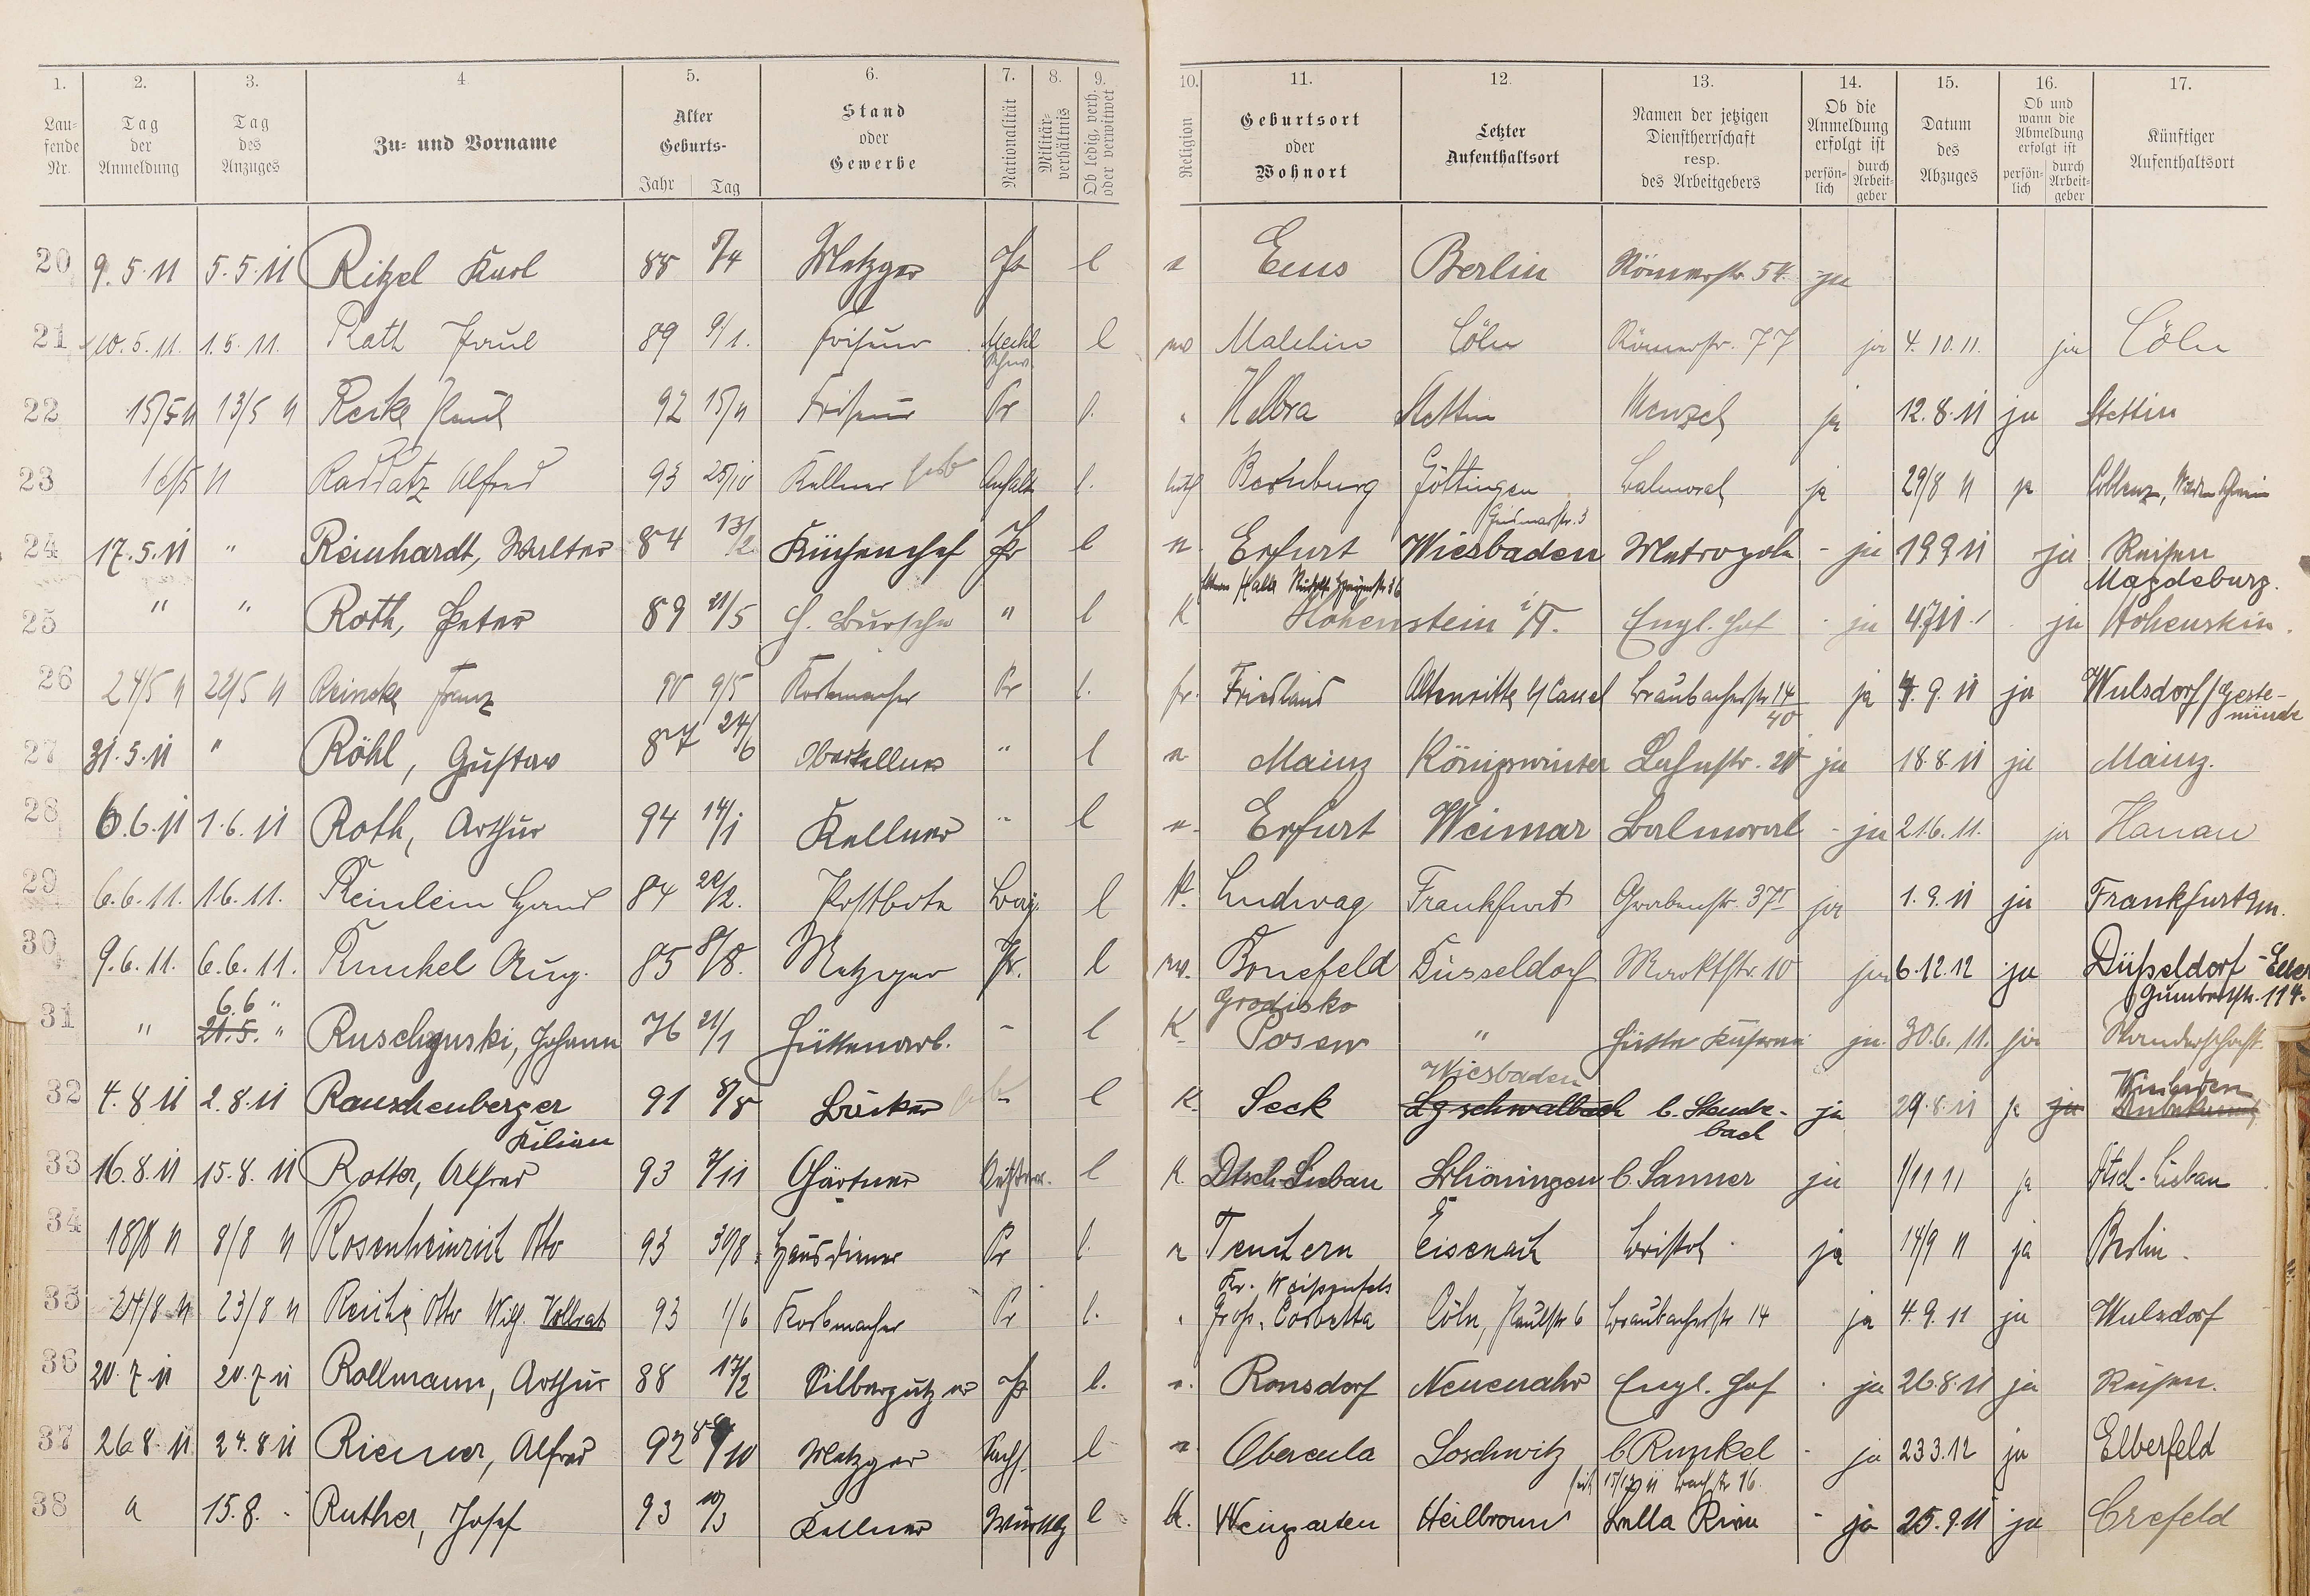 1. 2. 3. 4 5. 6. 7. 8. 9. 10. 11. 12. 13. 14. 15. 16. 17.
Lau-
fende
Nr.
Tag
der
Anmeldung
Tag
des
Anzuges
Zu- und Vorname
Alter
Geburts-
Jahr Tag
Stand
oder
Gewerbe
Nationalität
Militär-
verhältnis
Ob ledig, verh.
oder verwitwet
Religion
Geburtsort
oder
Wohnort
Letzter
Aufenthaltsort
Namen der jetzigen
Dienstherrschaft
resp.
des Arbeitgebers
Ob die
Anmeldung
erfolgt ist
persön-
lich
durch
Arbeit-
geber
Datum
des
Abzuges
Ob und
wann die
Abmeldung
erfolgt ist
persön-
lich
durch
Arbeit-
geber
Künftiger
Aufenthaltsort
20 9.5.11 5.5.11 Ritzel Karl 88 Metzger l Ems Berlin Römerstr. 54. ja
21 10.5.11. 1.5.11. Rath Paul 89 9/1. Friseur Meckl l Malchin Cöln Römerstr. 77 ja 4.10.11. ja Cöln
Schw.
22 15/5 11 13/5 11 Reske Paul 92 Friseur Pr l. Helbra Stettin Menzel ja 12.8.11 ja Stettin
23 11 Raddatz Alfred 93 Kellner Anhalt l. Bernburg Göttingen Balmoral ja 29/8 11 ja Coblenz,
24 17.5.11 " Reinhardt, Walter 84 13/2 Küchenchef Pr l Erfurt Wiesbaden Metropole - ja 19 9 11 ja Reisen
Magdeburg.
25 " " Roth, Peter 89 21/5 H. Bursche " l K Hohenstein i/T. Engl. Hof - ja 4711 ja Hohenstein.
26 24/5 11 22/5 11 Reincke Franz 90 9/5 Korbmacher Pr l. Friedland Altenritte b/ Cassel Braubacherstr 14 ja 4.9.11 ja Wulsdorf / Geeste-
münde
40
27 31.5.11 " Röhl, Gustav 87 24/6 Oberkellner " l Mainz Königswinter Lahnstr. ja 18.8.11 ja Mainz.
28 6.6.11 1.6.11 Roth, Arthur 94 14/1 Kellner " l Erfurt Weimar Balmoral - ja 21.6.11. ja Hanau
29 6.6.11. 1.6.11. Reinlein Hans 84 Postbote Bay. l K. Ludwag Frankfurt Grabenstr. 37 ja 1.9.11 ja Frankfurt a/m.
30 9.6.11. 6.6.11. Runkel Aug. 85 8/8. Metzger Pr. l Bonefeld Düsseldorf Marktstr. 10 ja 6.12.12 ja Düsseldorf - Eller
Gumbertstr. 114.
6.6 " Grodisko
31 " 21.5. " Johann 76 21/1 Hüttenarb. - l K. Posen " Hütte Kaserne ja. 30.6.11. ja Wanderschaft.
Wiesbaden Wiesbaden
32 4.8.11 2.8.11 Rauschenberger 91 8/8 Bäcker l K. Seck Lg schwalbach b. Staude- ja 29.8.11 ja ja Unbekannt
Kilian bach
33 16.8.11 15.8.11 Rotter, Alfred 93 7/11 Gärtner Oesterr. l K. Dtsch-Liebau Schöningen b. Sanner ja 1/11 11 ja Dtsch-Liebau
34 18/8 11 8/8 11 Rosenheinrich Otto 93 30/8 Hausdiener Pr l. Teuchern Eisenach Bristol ja 14/9 11 ja Berlin.
Kr. Weissenfels
35 24/8 11 23/8 11 Otto Wilh. Vollrat 93 1/6 Korbmacher Pr l. Gross. Corbetta Cöln, Paulstr 6 Braubacherstr 14 ja 4.9.11 ja Wulsdorf
36 20.7.11 20.7.11 Rollmann, Arthur 88 17/2 Silberputzer Pr l. Ronsdorf Neuenahr Engl. Hof - ja 26.8.11 ja Reisen.
37 26.8.11 24.8.11 Riemer, Alfred 92 Metzger Sachs. l Obercula Loschwitz b Runkel - ja 23 3.12 ja Elberfeld
38 15.8. Ruther, Josef 93 10/3 Kellner Württbg l K. Weingarten Heilbronn Bella Riva - ja 25.9.11 ja Crefeld